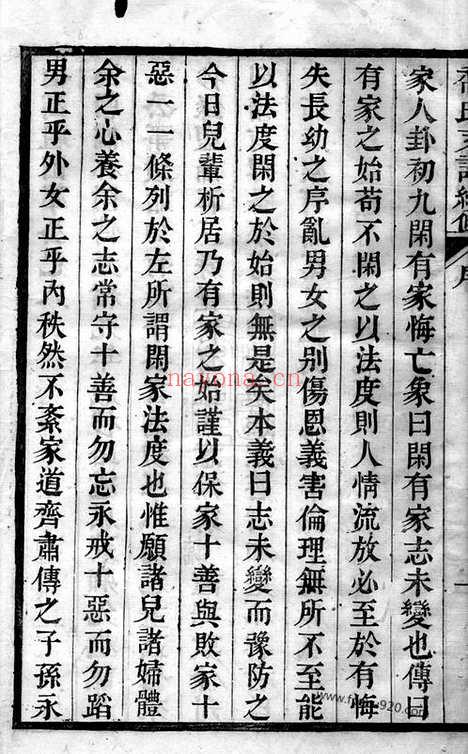 家人卦初九閑有家悔亡象曰閑有家志未變也傳曰
有家之始苟不閑之以法度則人情流放必至於有悔
失長幼之序亂男女之別傷恩義害倫理無所不至能
以法度閑之於始則無是矣本義曰志未變而豫防之
今日兒輩析居乃有家之始謹以保家十善與敗家十
惡一一條列於左所謂閑家法度也惟願諸兒諸婦體
余之心養余之志常守十善而勿忘永戒十惡而勿蹈
男正乎外女正乎內秩然不紊家道齊肅傳之子孫永
nayona.cn